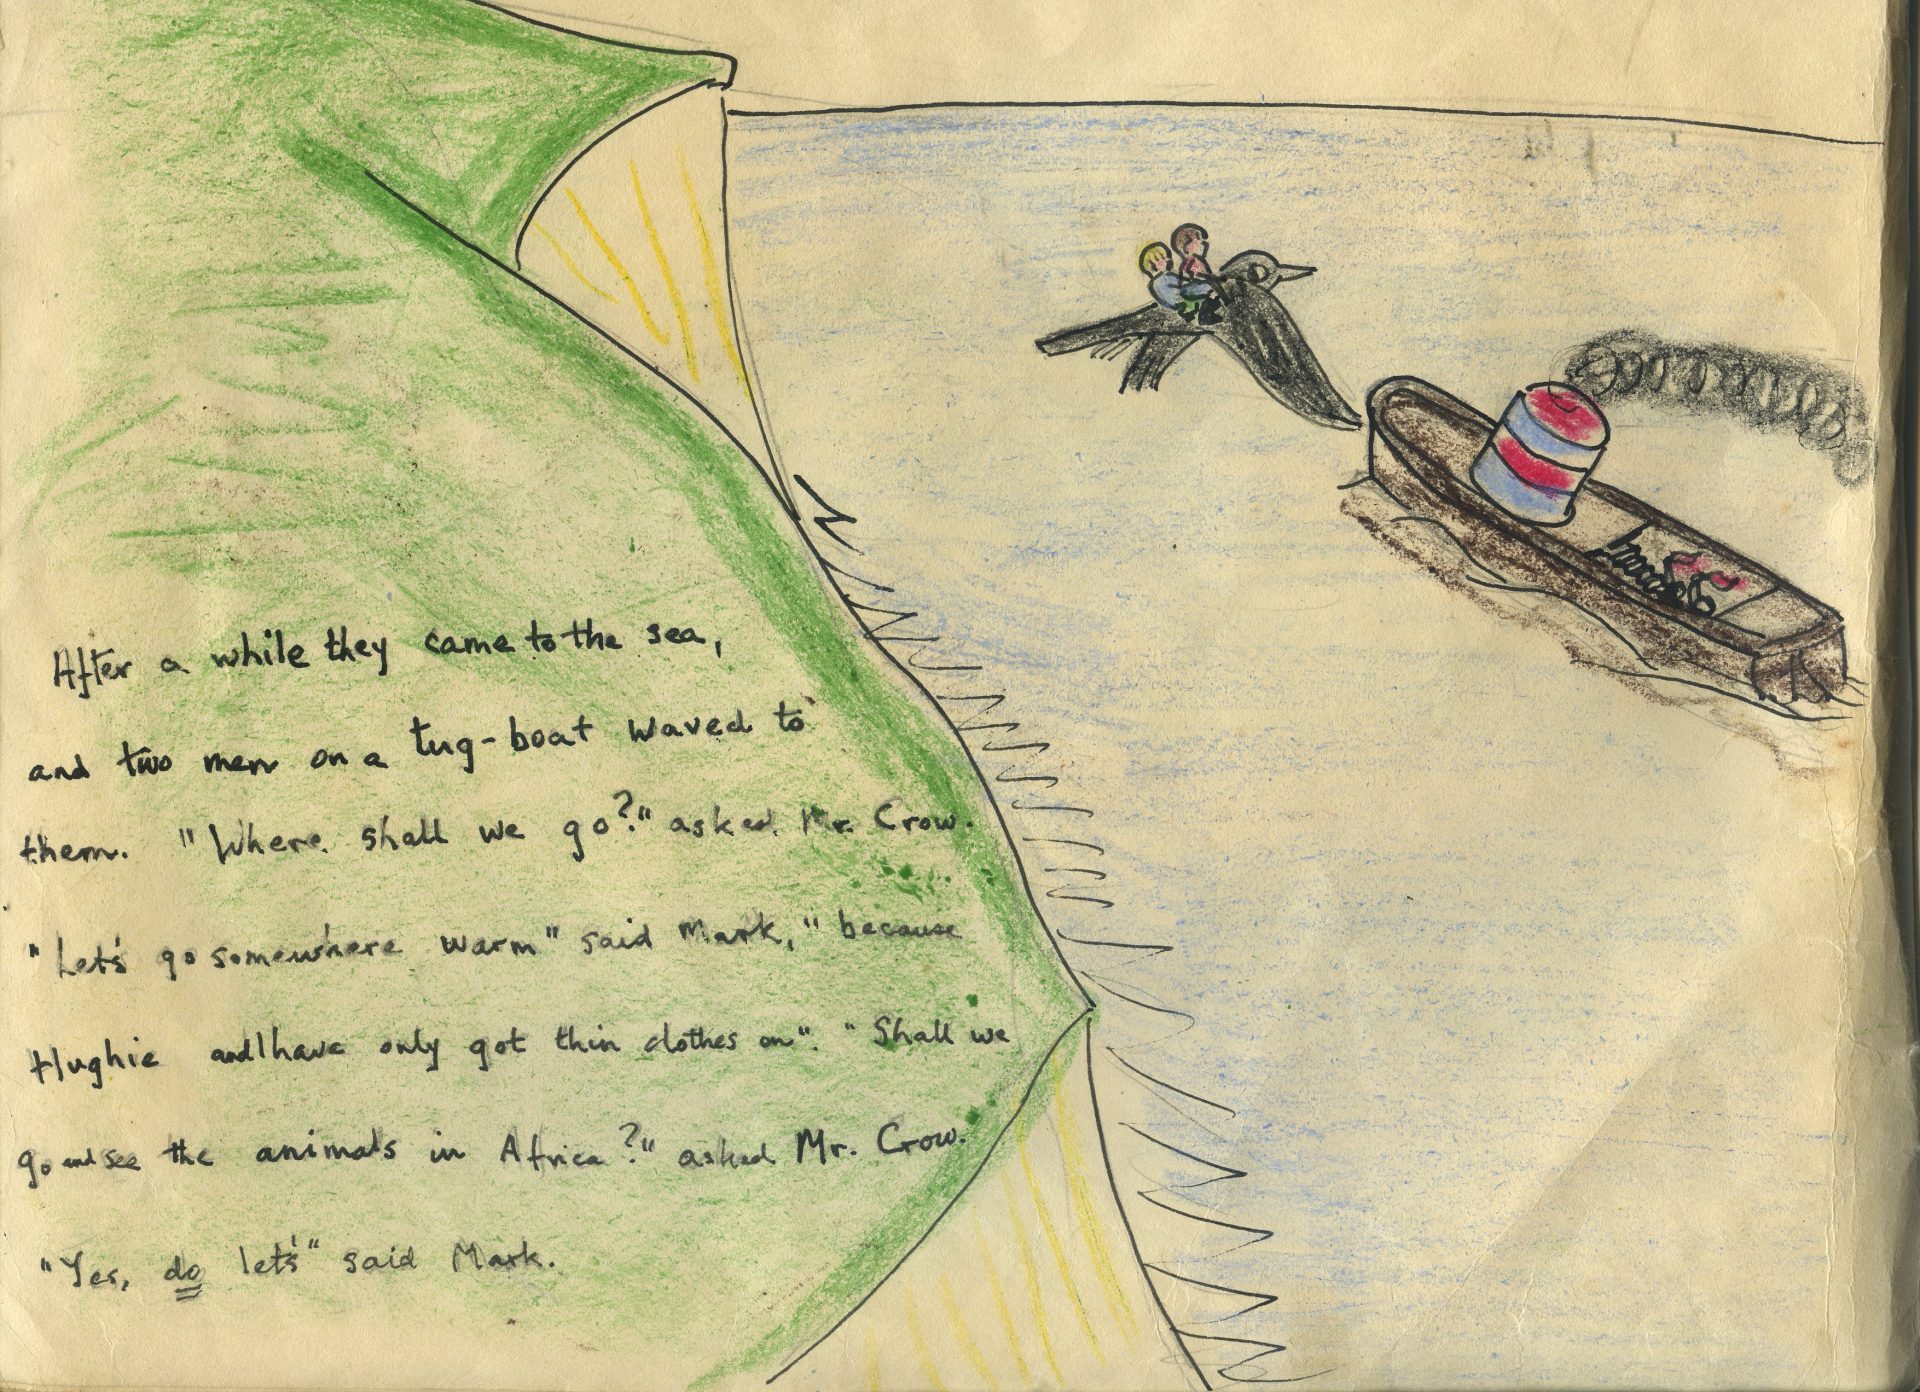 After a while they came to the sea,
and two men on a tug-boat waved to
them. "Where shall we go?" asked Mr. Crow.
"Let's go somewhere warm" said Mark, "because
Hughie and I have only got thin clothes on". "Shall we
go and see the animals in Africa?" asked Mr. Crow.
"Yes, do let's" said Mark.